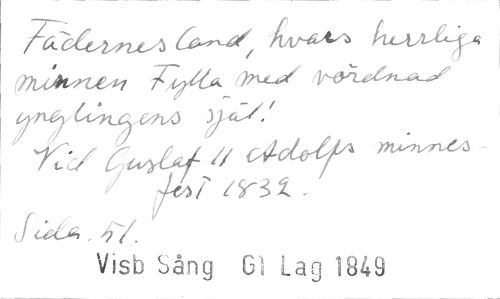 Fädernesland, hvars herrliga
minnen Fylla med vördnad
ynglingens själ!
Vid Gustaf II Adolfs minnes-
fest 1832.
Sida. 51.
Visb Sång Gl Lag 1849